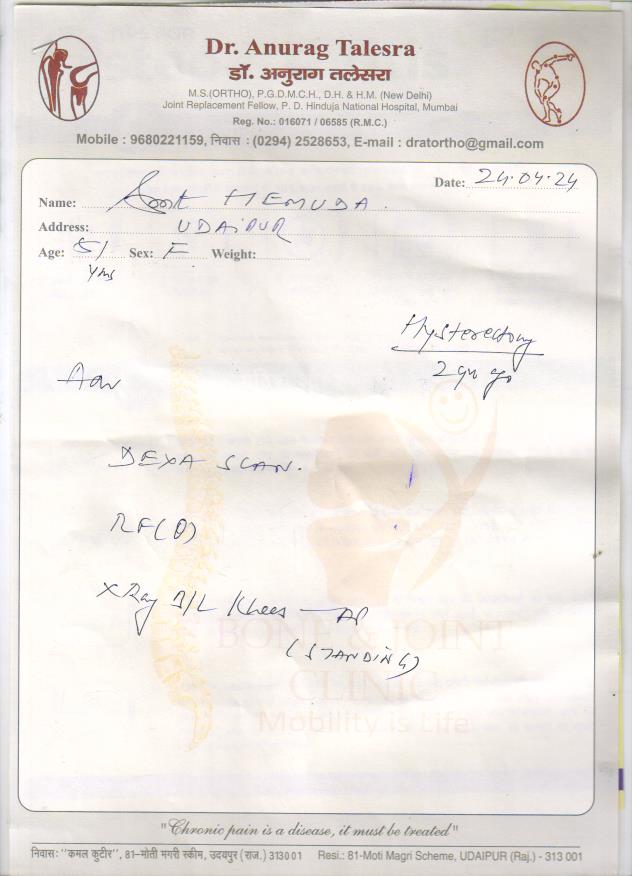 Dr. Anurag Talesra
डॉ. अनुराग तलेसरा
M.S.(ORTHO), P.G.D.M.C.H., D.H. & H.M. (New Delhi)
Joint Replacement Fellow, P. D. Hinduja National Hospital, Mumbai
Reg. No.: 016071 / 06585 (R.M.C.)
Mobile : 9680221159, निवास : (0294) 2528653, E-mail : dratortho@gmail.com
Date: 24.04.24
Name: HEMUDA.
Address: UDAIPUR
Age: 51 Sex: F Weight:
yrs
Hysterectomy
2 yr ago
Adv
DEXA SCAN.
RF(Q)
X Ray B/L Knees — AP
(STANDING)
BONE & JOINT
CLINIC
Mobility is Life
"Chronic pain is a disease, it must be treated"
निवास: "कमल कुटीर", 81-मोती मगरी स्कीम, उदयपुर (राज.) 313001 Resi.: 81-Moti Magri Scheme, UDAIPUR (Raj.) - 313 001